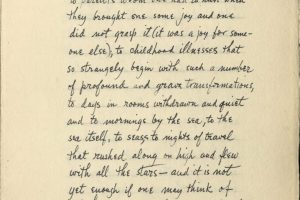 to parents whom one had to hurt when
they brought one some joy and one
did not grasp it (it was a joy for some-
one else); to childhood illnesses that
so strangely begin with such a number
of profound and grave transformations,
to days in rooms withdrawn and quiet
and to mornings by the sea, to the
sea itself, to seas, to nights of travel
that rushed along on high and flew
with all the stars — and it is not
yet enough if one may think of